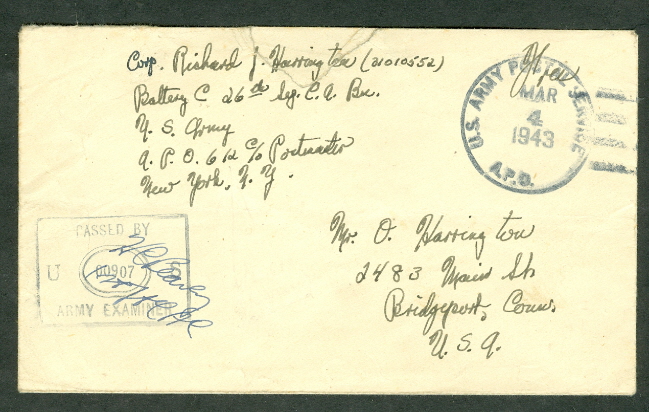 Corp. Richard J. Harrington (21010552)
Battery C 26th Sep. C. A. Bn.
U. S. Army
A. P. O. 612 c/o Postmaster
New York, N. Y.
Free
U.S. ARMY POSTAL SERVICE
MAR
4
1943
A.P.O.
Mr. O. Harrington
2483 Main St.
Bridgeport, Conn.
U. S. A.
PASSED BY
U 00907 S
ARMY EXAMINER